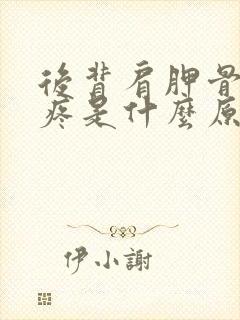 後背肩胛骨
疼是什麼原
伊小謝